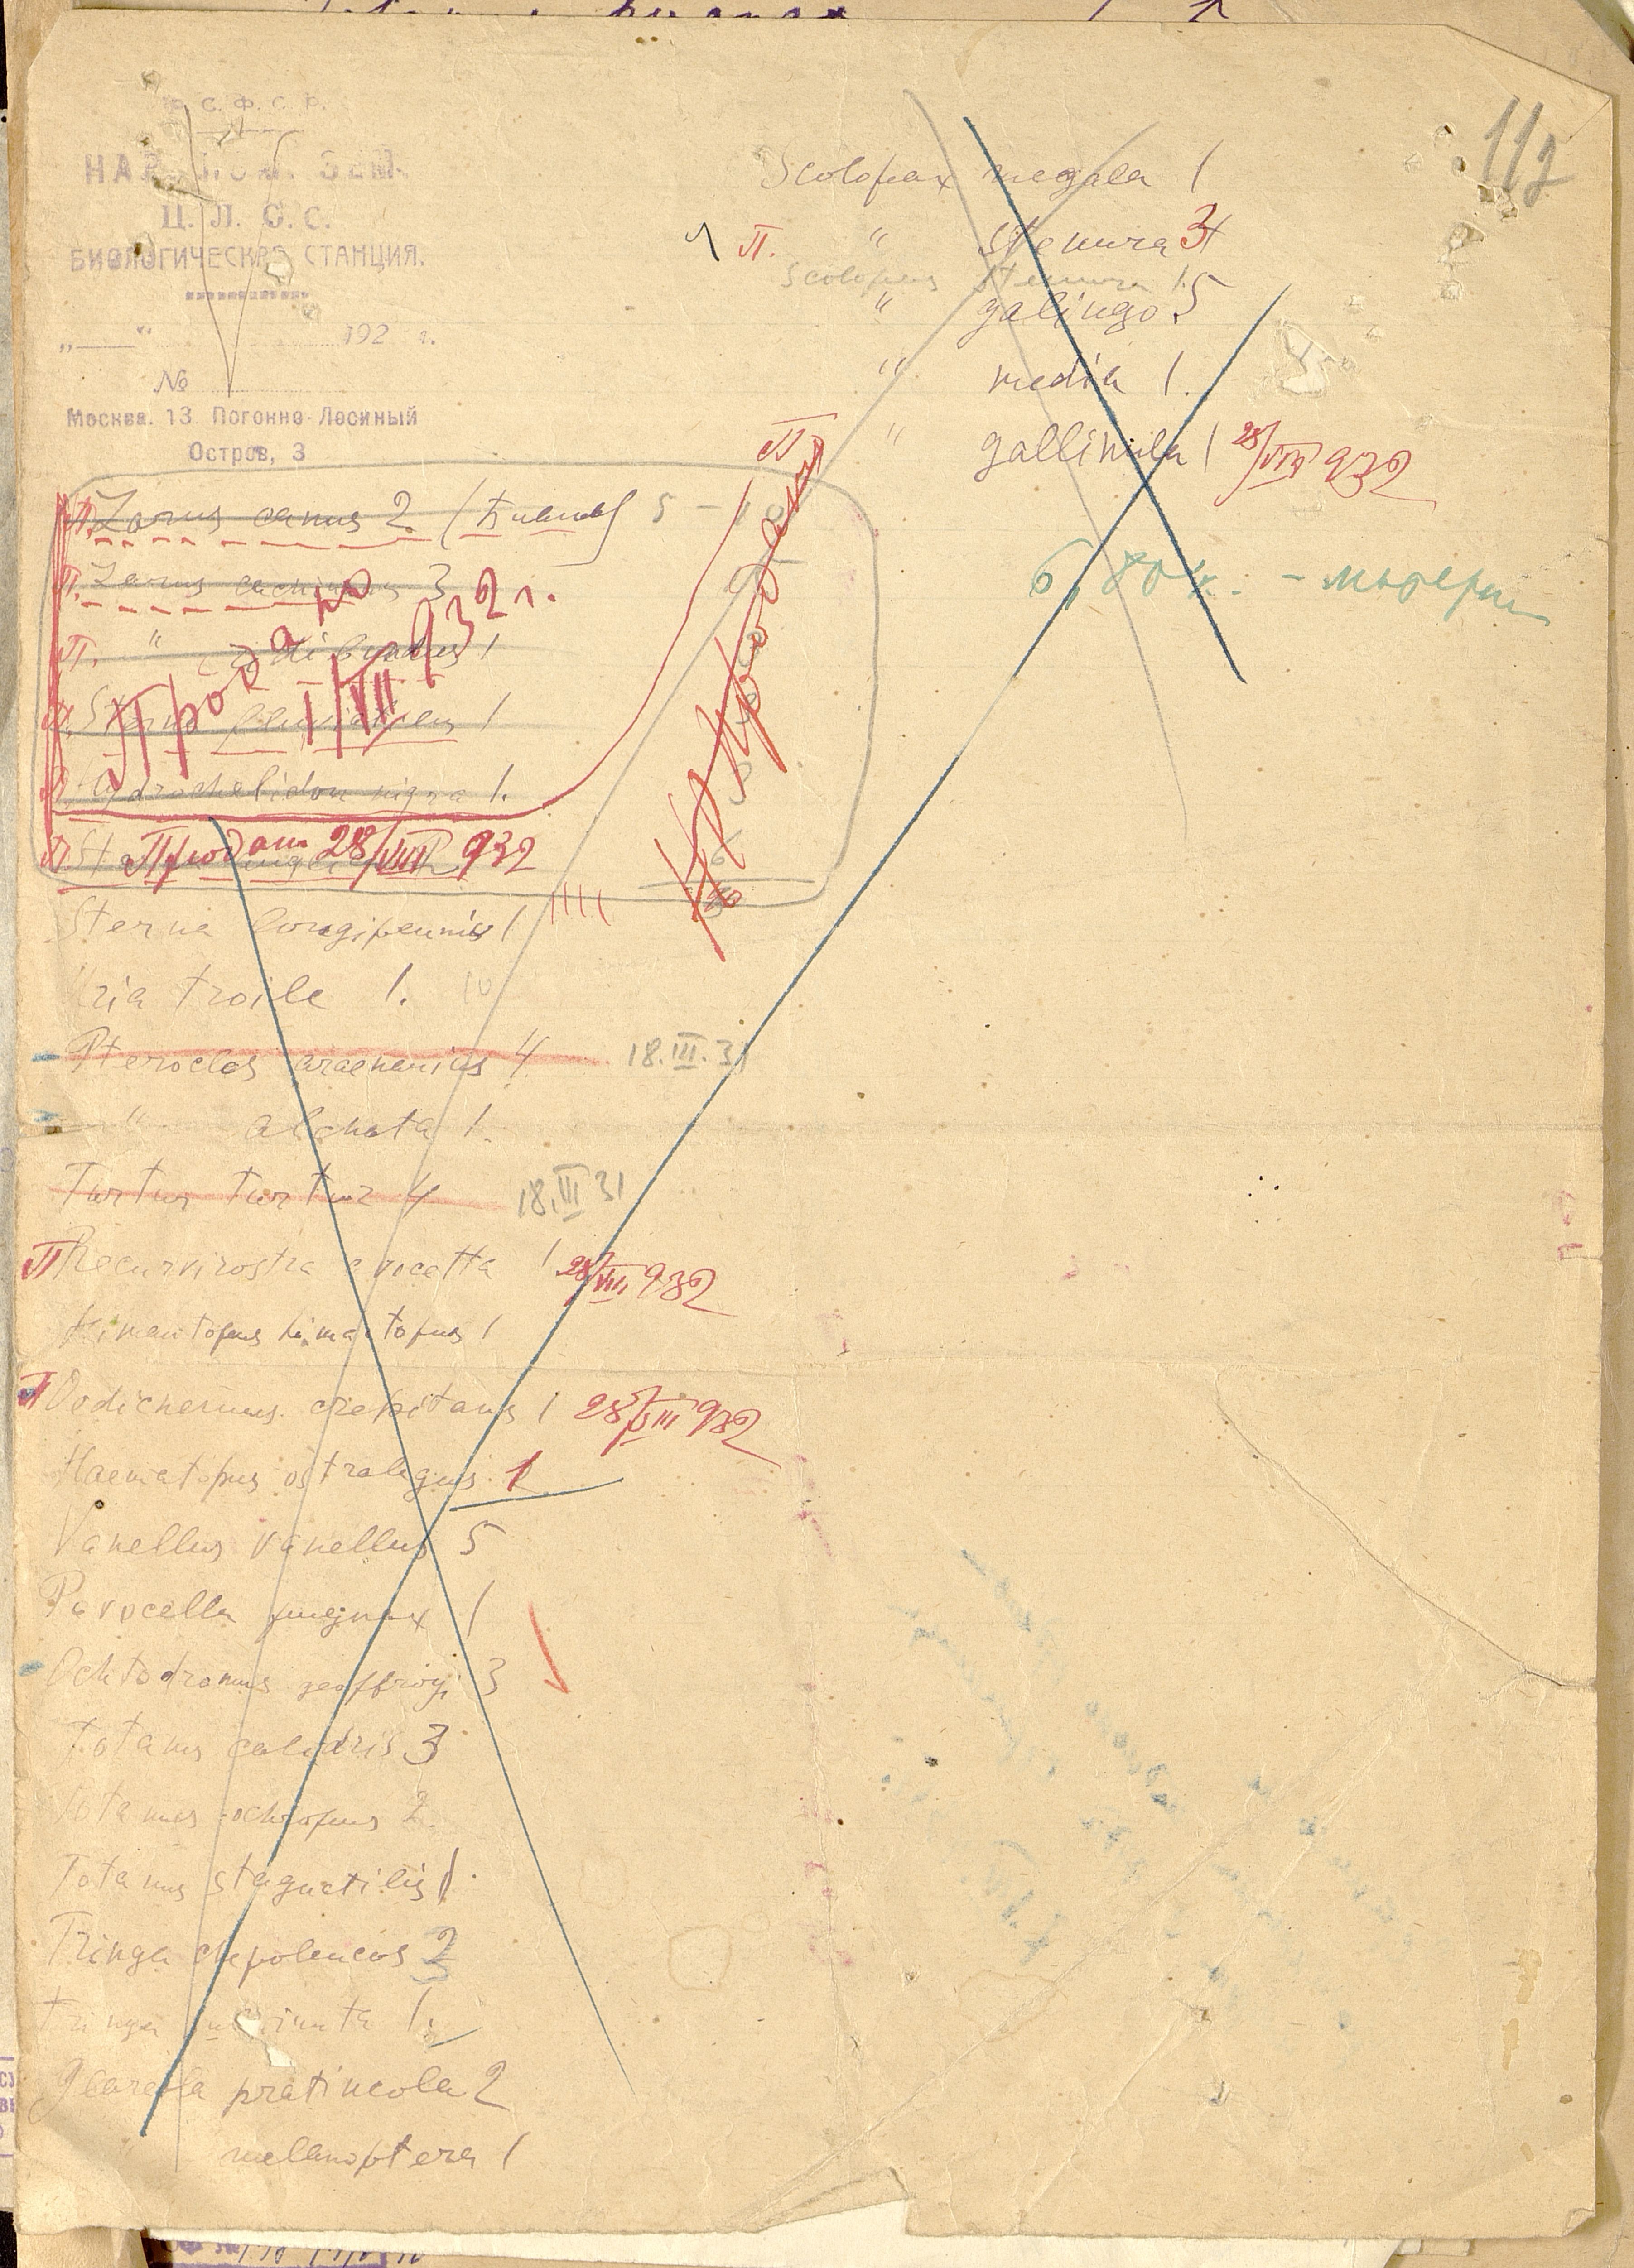 Р. С. Ф. С. Р.
НАР. КОМ. ЗЕМ.
Ц. Л. О. С.
БИОЛОГИЧЕСКАЯ СТАНЦИЯ.
„ “ 192 г.
№
Москва. 13 Погонно-Лосиный
Остров, 3
112
Scolopax megala 1
П. " stenura 3
Scolopax stenura 1.
" galingo 5
" media 1.
" gallinula 1 28/VIII 932
6, 80 к. -
П. Larus canus 2 5 -
П. Larus cachinans 3
П. " ridibundus 1
П. Sterna fluviatilis 1
П. Hydrochelidon nigra 1.
Продано 1/VII 932 г.
П Продано
П. Продан 28/VIII 932
Sterna longipennis 1
Uria troile 1. 10
Pterocles araenarius 4 18.III.31
" alchata 1.
Turtur turtur 4 18.III 31
П Recurvirostra avocetta 1 28/VIII 932
Himantopus himantopus 1
П Oedicnemus crepitans 1 28/VIII 932
Haematopus ostralegus 1
Vanellus vanellus 5
Pavocella pugnax 1
Ochtodromus geoffroyi 3
Totanus calidris 3
Totanus ochropus 2.
Totanus stagnatilis 1.
Tringa
Tringa 1.
Glareola pratincola 2
" melanoptera 1